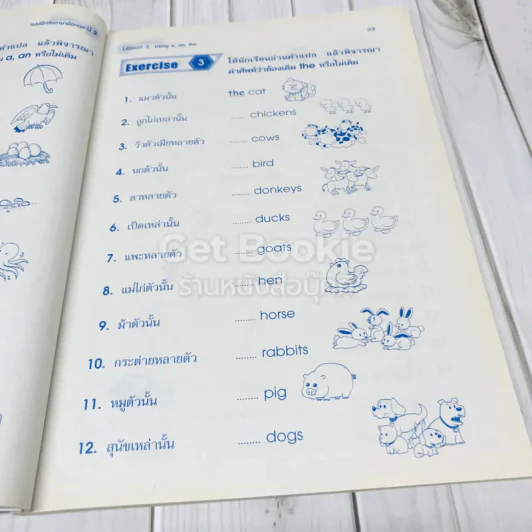 แบบฝึกหัดภาษาอังกฤษ ป.2
คำแปล แล้วพิจารณา
a, an หรือไม่เติม
33
Lesson 3 using a, an, the
Exercise 3
ให้นักเรียนอ่านคำแปล แล้วพิจารณา
คำศัพท์ว่าต้องเติม the หรือไม่เติม
1. แมวตัวนั้น the cat
2. ลูกไก่เหล่านั้น ...... chickens
3. วัวตัวเมียหลายตัว ....... cows
4. นกตัวนั้น ....... bird
5. ลาหลายตัว ........ donkeys
6. เป็ดเหล่านั้น ........ ducks
7. แพะหลายตัว ........ goats
8. แม่ไก่ตัวนั้น ........ hen
9. ม้าตัวนั้น ........ horse
10. กระต่ายหลายตัว ........ rabbits
11. หมูตัวนั้น ........ pig
12. สุนัขเหล่านั้น ........ dogs
Get Bookie
ร้านหนังสือบุ๊